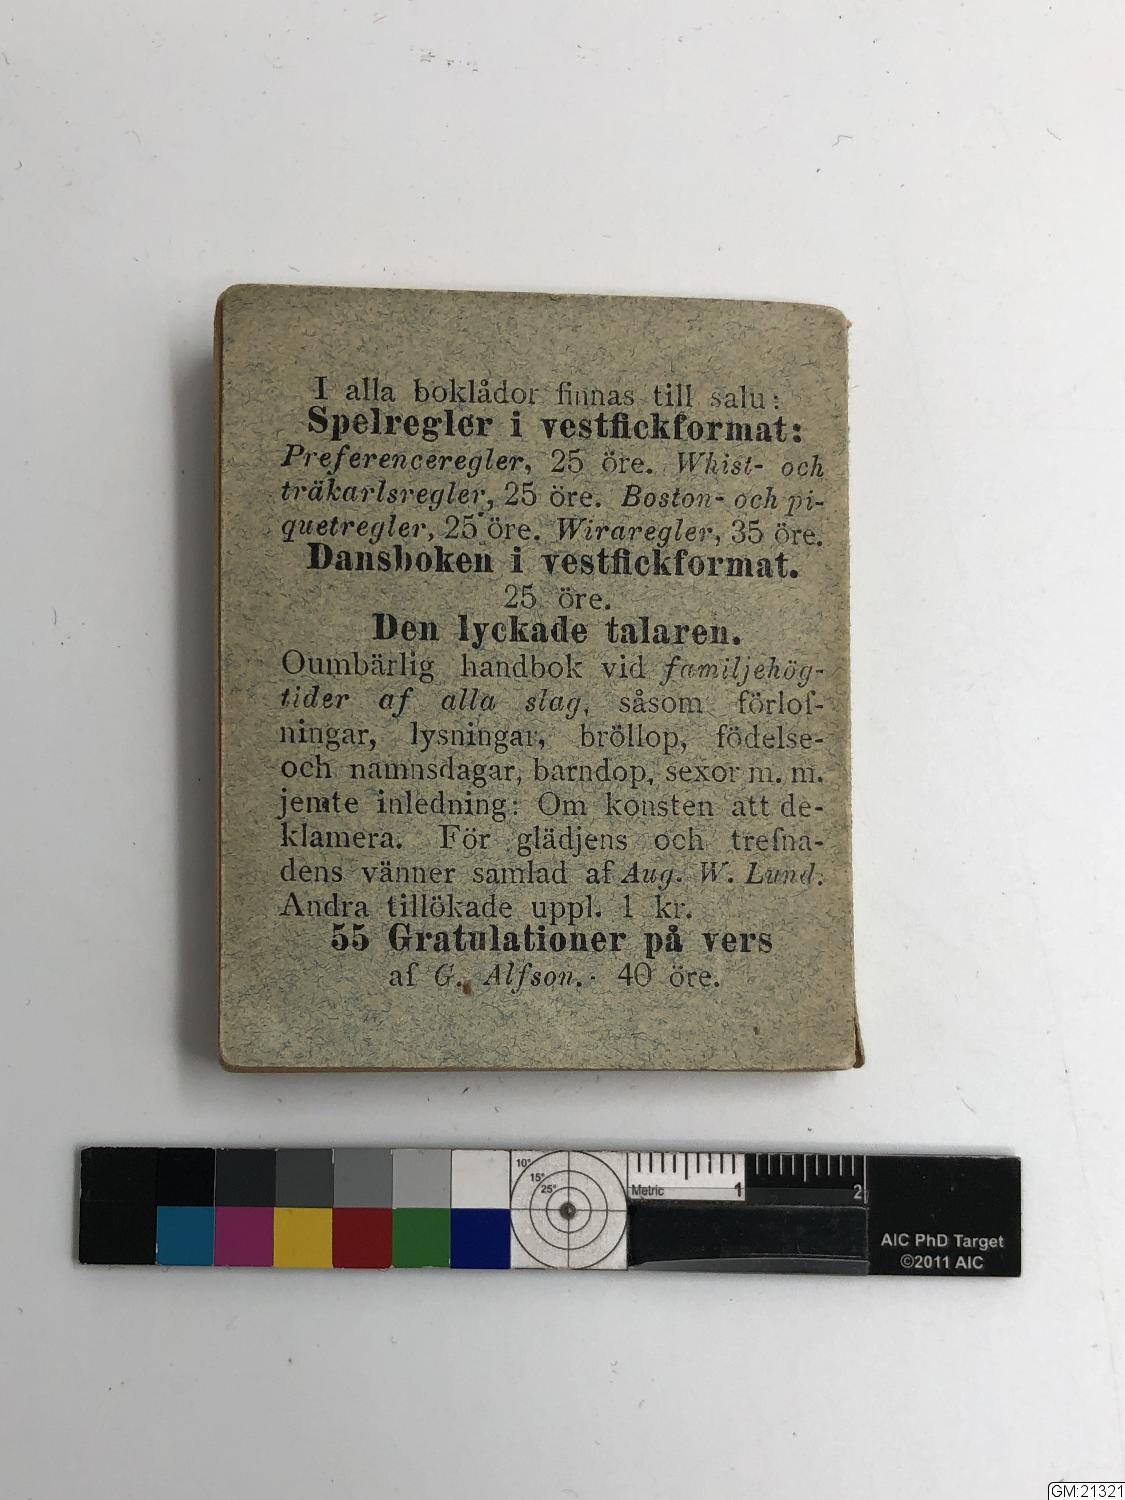 I alla boklådor finnas till salu:
Spelregler i vestfickformat:
Preferenceregler, 25 öre. Whist- och
träkarlsregler, 25 öre. Boston- och pi-
quetregler, 25 öre. Wiraregler, 35 öre.
Dansboken i vestfickformat.
25 öre.
Den lyckade talaren.
Oumbärlig handbok vid familjehög-
tider af alla slag, såsom förlof-
ningar, lysningar, bröllop, födelse-
och namnsdagar, barndop, sexor m. m.
jemte inledning: Om konsten att de-
klamera. För glädjens och trefna-
dens vänner samlad af Aug. W. Lund.
Andra tillökade uppl. 1 kr.
55 Gratulationer på vers
af G. Alfson. 40 öre.
10°
15°
25°
Metric 1 2
AIC PhD Target
©2011 AIC
GM:21321